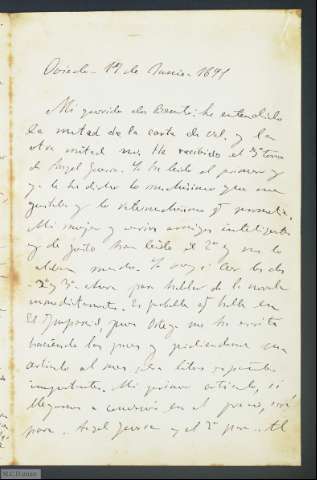 Oviedo - 17 de Junio - 1891
Mi querido don Benito: he entendido
la mitad de la carta de vd. y la
otra mitad no. He recibido el 3er tomo
de Angel Guerra. Yo he leido el primero y
ya le he dicho lo muchísimo que me
gustaba y lo interesantísimo q prometia.
Mi mujer y varios amigos inteligentes
y de gusto han leido el 2º y me lo
alaban mucho. Yo voy a leer los dos
2º y 3º ahora para hablar de la novela
inmediatamente. Es posible q hable en
El Imparcial, pues Ortega me ha escrito
haciendo las paces y pidiendome un
artículo al mes para letras españolas
importantes. Mi primer artículo, si
llegamos a convenir en el precio, será
para Angel Guerra y el 2º para Al